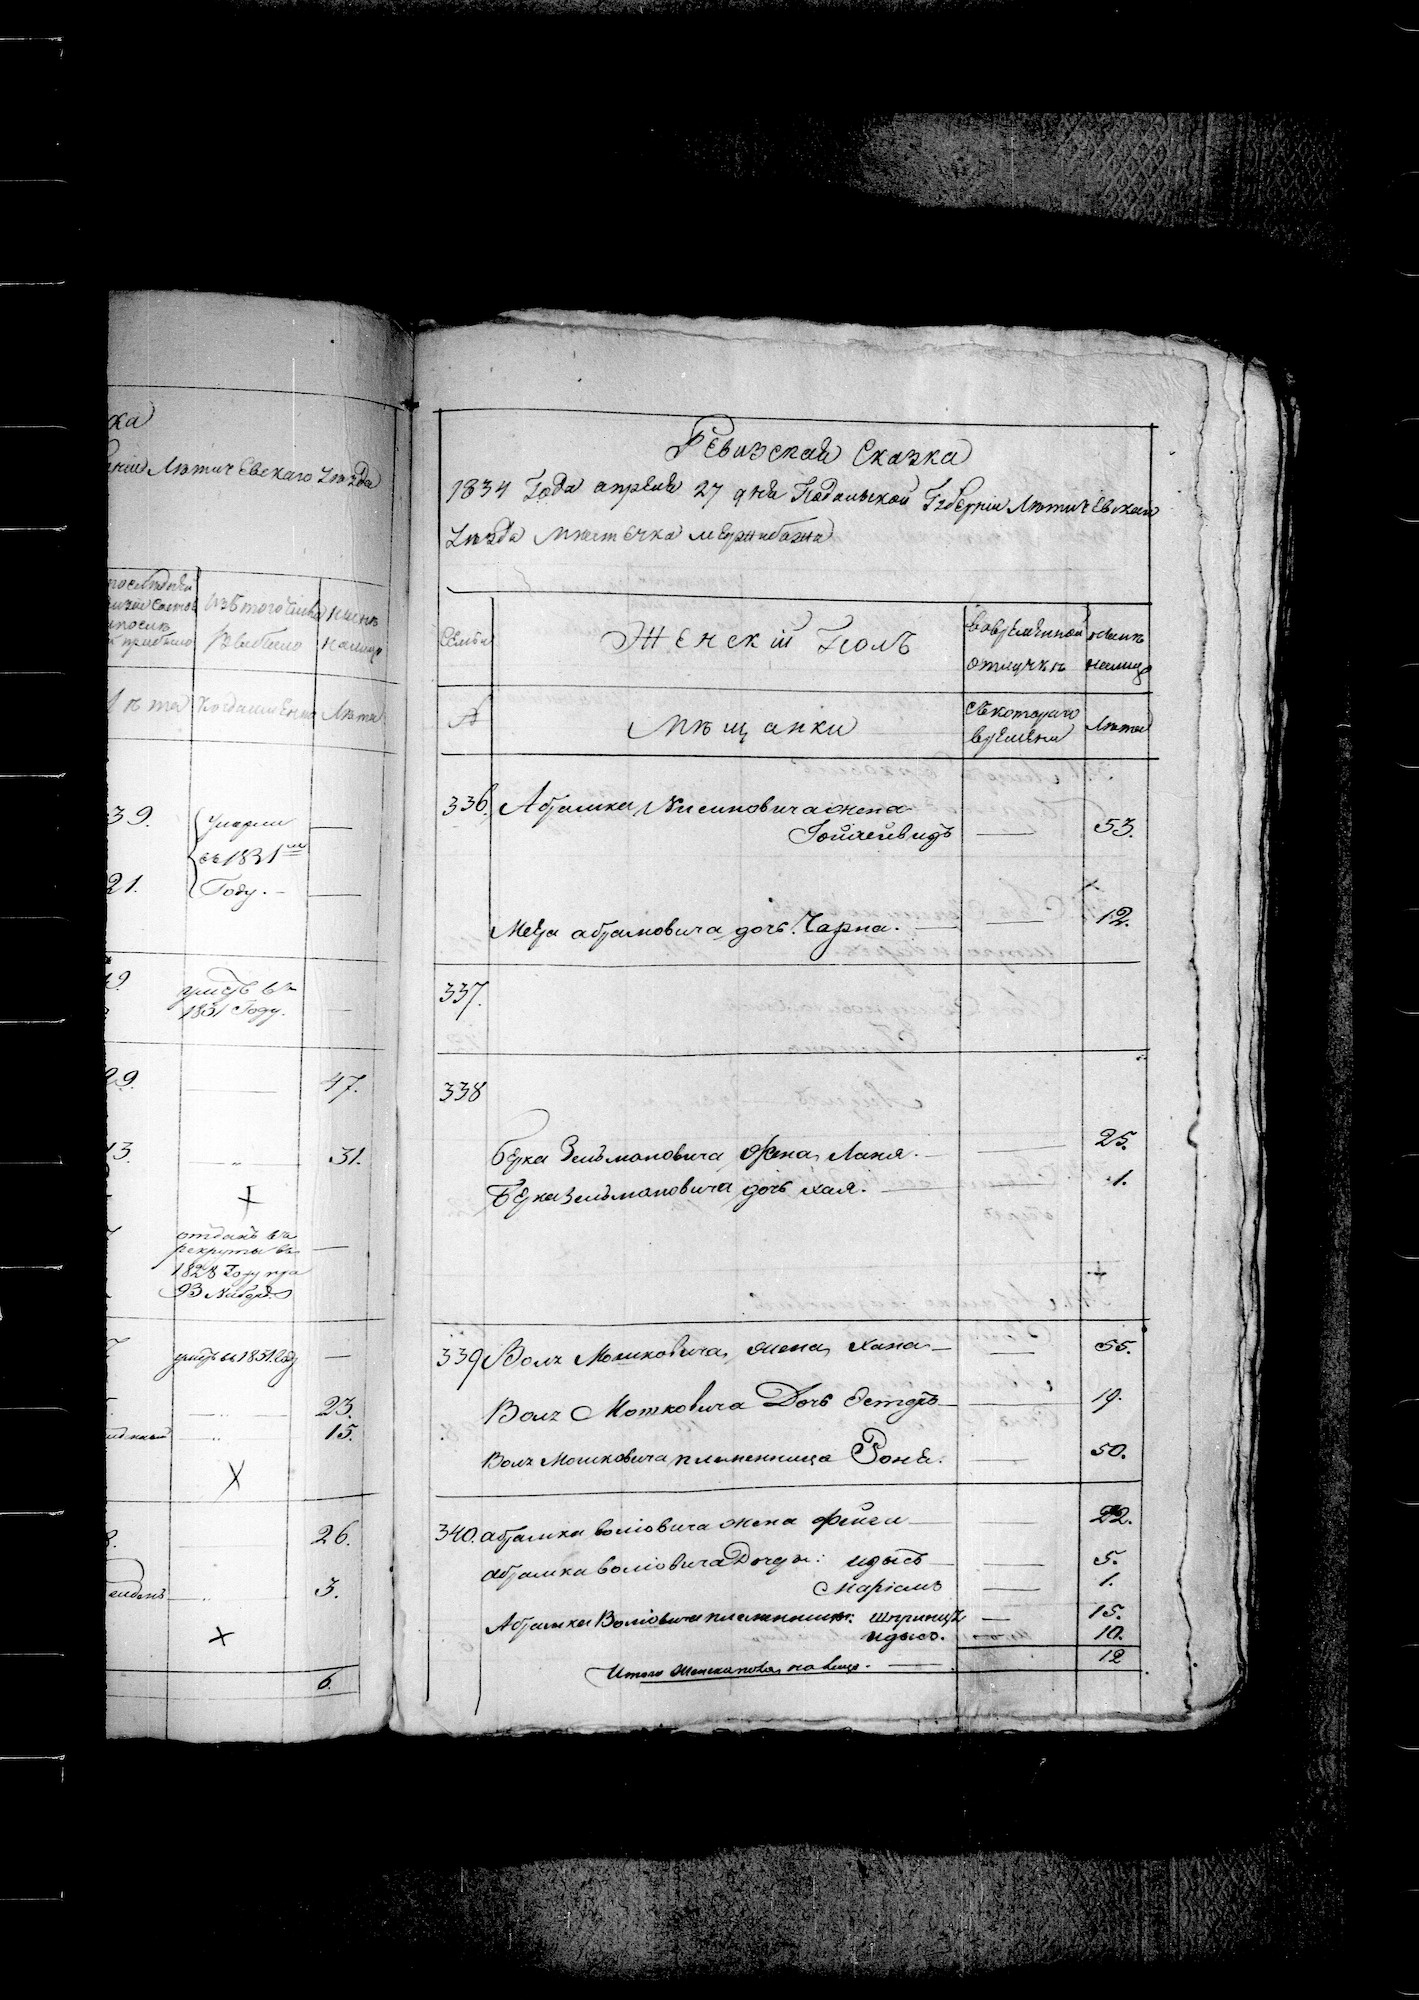 ка
Лѣтичевскаго уѣзда
изъ того числа
выбыло
нынѣ
налицо
лѣта
когда именно
Лѣта
39.
умерли
въ 1831мъ
21.
Году.
умеръ въ
1831 Году.
29.
47.
13.
31.
отданъ въ
рекруты въ
1828 Году на
93 Наборъ
умеръ въ 1831 году
23.
15.
26.
3.
6.
Ревизская Сказка
1834 Года апреля 27 дня Подольской Губерніи Лѣтичевскаго
уѣзда мѣстечка Меджибожа
Семьи
Женскій Полъ
во временной
отлучкѣ
нынѣ
налицо
А
Мѣщанки
съ котораго
времени
Лѣта
336. Абрамка Нисиновича жена
53.
Меера абрамовича дочь Чарна. 12.
337.
338
Берка Зельмановича жена Ханя. 25.
Берка Зельмановича дочь Хая. 1.
339 Волъ Мошковича жена Хана 55.
Волъ Мошковича Дочь Естеръ 19.
Волъ Мошковича племенница Роня. 50.
340. абрамка воліовича жена фейги 22.
абрамка воліовича Дочери: идысъ 5.
Маріамъ 1.
Абрамка Воліовича племенницы: шпринца 15.
идысъ. 10.
Итого женска пола на лицо. 12